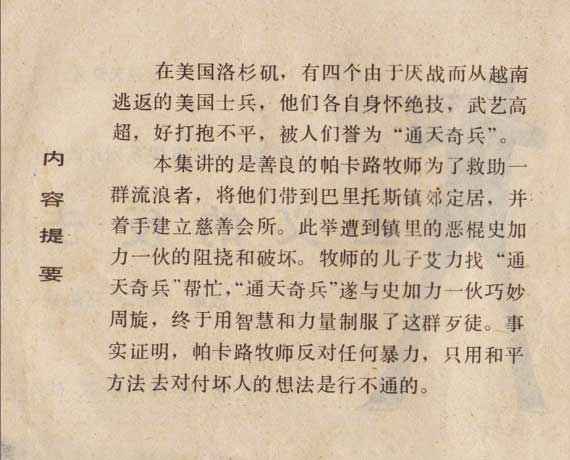 内容提要
在美国洛杉矶，有四个由于厌战而从越南
逃返的美国士兵，他们各自身怀绝技，武艺高
超，好打抱不平，被人们誉为“通天奇兵”。
本集讲的是善良的帕卡路牧师为了救助一
群流浪者，将他们带到巴里托斯镇郊定居，并
着手建立慈善会所。此举遭到镇里的恶棍史加
力一伙的阻挠和破坏。牧师的儿子艾力找“通
天奇兵”帮忙，“通天奇兵”遂与史加力一伙巧妙
周旋，终于用智慧和力量制服了这群歹徒。事
实证明，帕卡路牧师反对任何暴力，只用和平
方法去对付坏人的想法是行不通的。